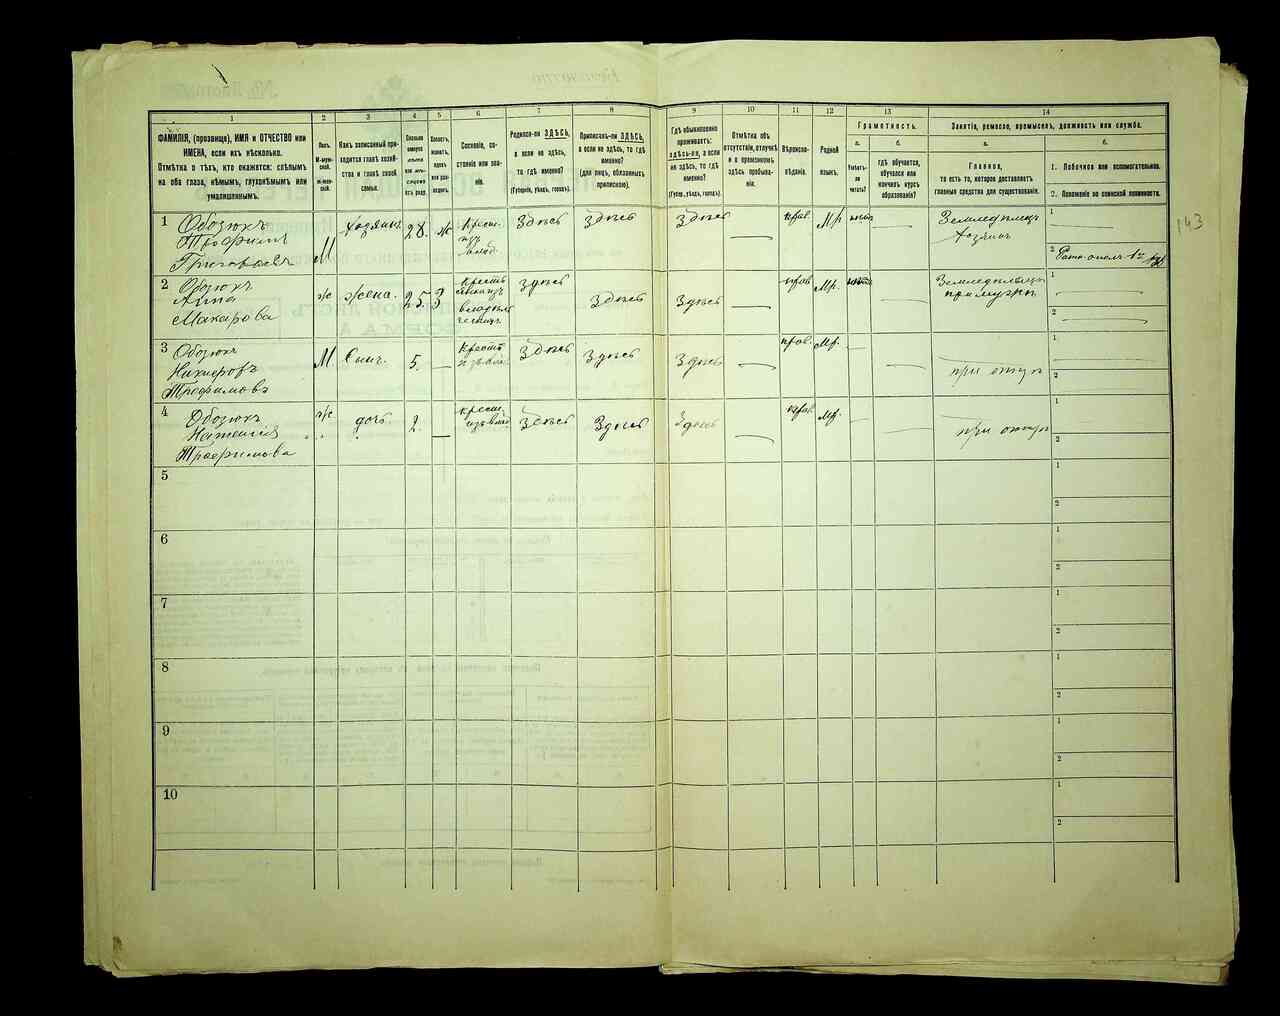 1
2
3
4
5
6
7
8
9
10
11
12
13
14
Грамотность.
Занятіе, ремесло, промыселъ, должность или служба.
ФАМИЛІЯ, (прозвище), ИМЯ и ОТЧЕСТВО или
ИМЕНА, если ихъ нѣсколько.
Отмѣтка о тѣхъ, кто окажется: слѣпымъ
на оба глаза, нѣмымъ, глухонѣмымъ или
умалишеннымъ.
Полъ.
М-муж-
ской.
Ж-жен-
ской.
Какъ записанный при-
ходится главѣ хозяй-
ства и главѣ своей
семьи.
Сословіе, со-
стояніе или зва-
ніе.
Родился-ли ЗДѢСЬ,
а если не здѣсь,
то гдѣ именно?
(Губернія, уѣздъ, городъ).
Приписанъ-ли ЗДѢСЬ,
а если не здѣсь, то гдѣ
именно?
(для лицъ, обязанныхъ
припискою).
Гдѣ обыкновенно
проживаетъ:
здѣсь-ли, а если
не здѣсь, то гдѣ
именно?
(Губер., уѣздъ, городъ).
Отмѣтка объ
отсутствіи, отлучкѣ
и о временномъ
здѣсь пребыва-
ніи.
Вѣроиспо-
вѣданіе.
Родной
языкъ.
а.
Умѣетъ-
ли
читать?
б.
гдѣ обучается,
обучался или
кончилъ курсъ
образованія?
а.
Главное,
то есть то, которое доставляетъ
главныя средства для существованія.
б.
1. Побочное или вспомогательное.
2. Положеніе по воинской повинности.
1 Обозюкъ
Трофимъ
Григорьевъ
М
хозяинъ
28.
Крест.
изъ
влад.
Здѣсь
Здѣсь
Здѣсь
прав.
Мр
Земледѣлецъ
хозяинъ
1
2
143
2 Обозюкъ
Анна
Макарова
ж
жена.
25.
Здѣсь
Здѣсь
Здѣсь
прав
Мр.
при мужѣ
1
2
3 Обозюкъ
Никифоръ
Трофимовъ
М.
Сынъ.
5.
Здѣсь
Здѣсь
Здѣсь
прав.
Мр.
при отцѣ
1
2
4 Обозюкъ
Наталія
Трофимова
ж
дочь
2.
Здѣсь
Здѣсь
Здѣсь
прав
Мр.
при отцѣ
1
2
5
1
2
6
1
2
7
1
2
8
1
2
9
1
2
10
1
2